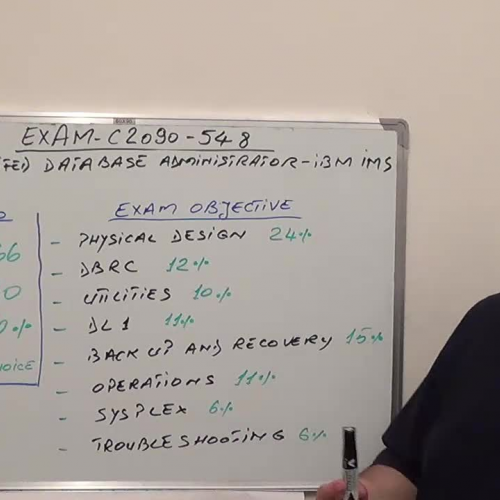 EXAM-C2090-548
DATABASE ADMINISTRATOR-iBM iMS
EXAM OBJECTIVE
- PHYSICAL DESIGN 24%
- DBRC 12%
- UTILITIES 10%
- DL1 11%
- BACK UP AND RECOVERY 15%
- OPERATIONS 11%
- SYSPLEX 6%
- TROUBLESHOOTING 6%